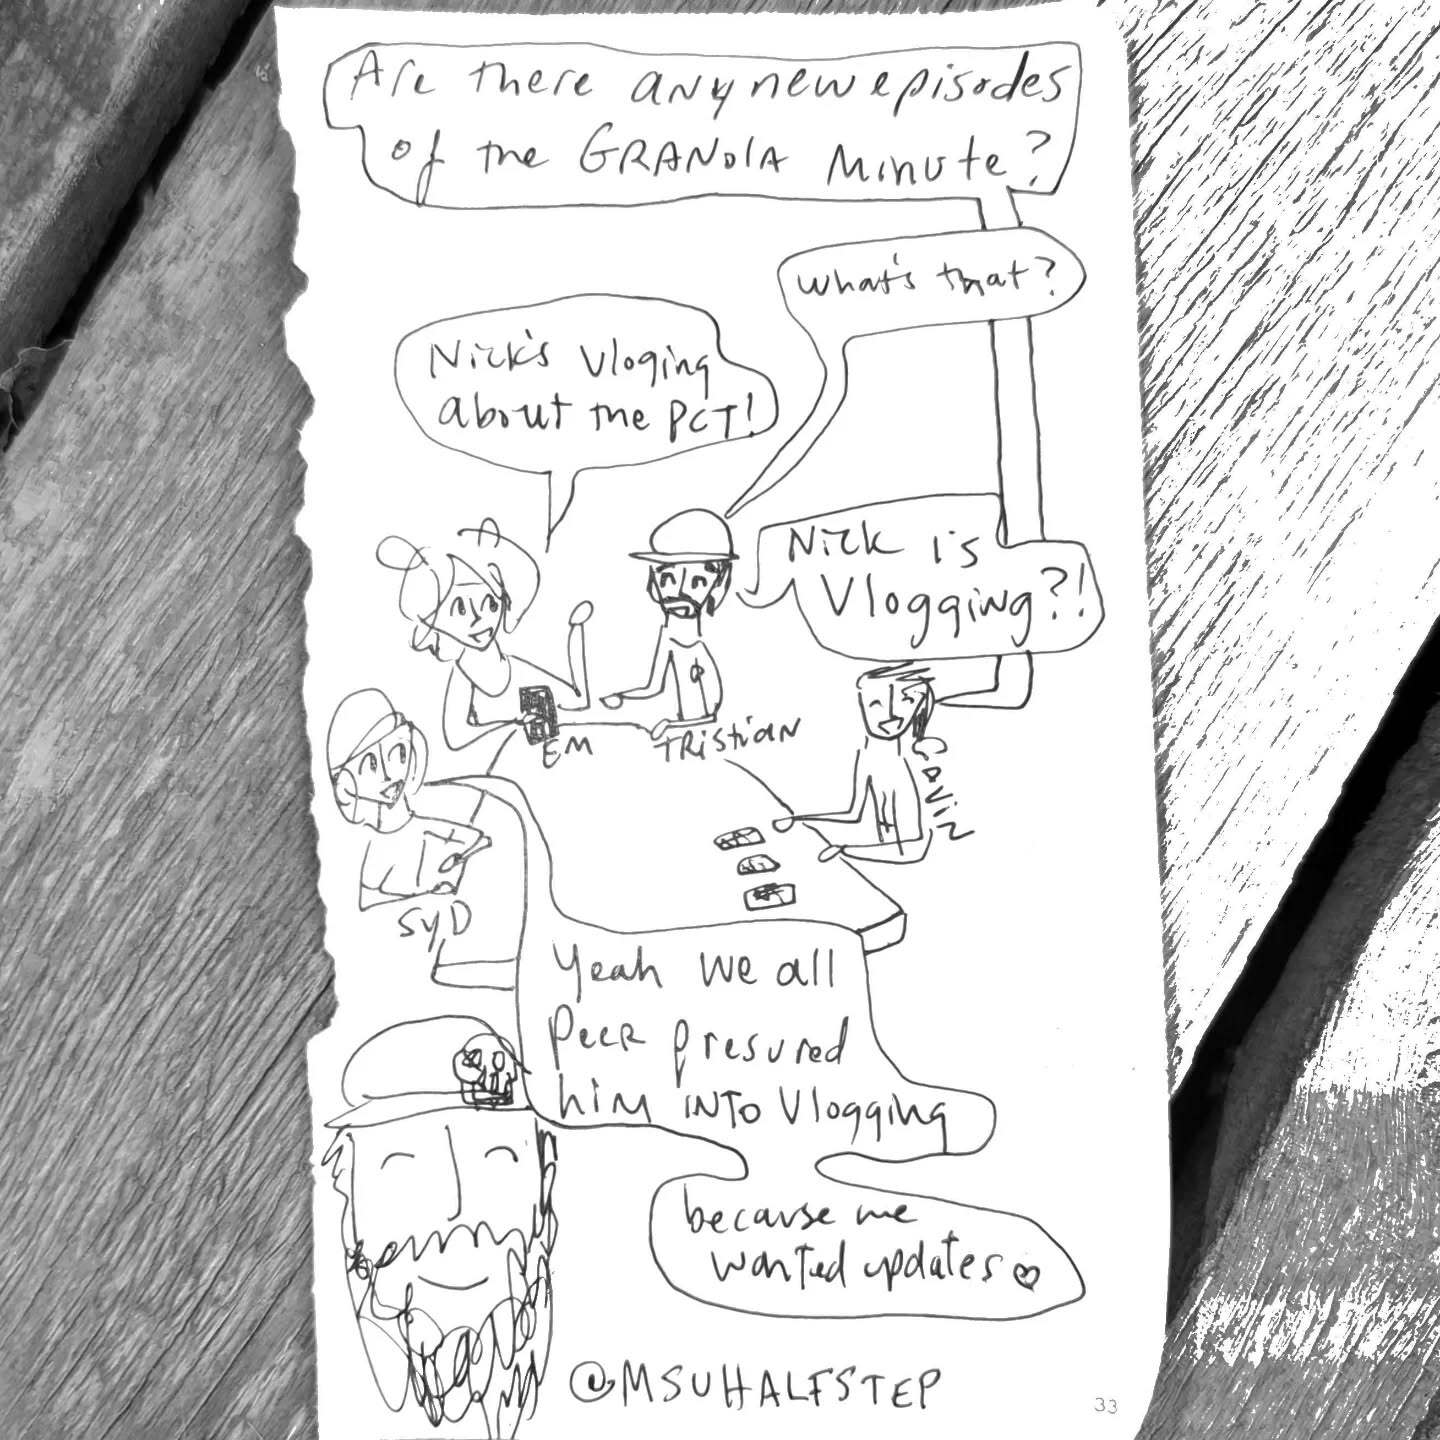 Are there any new episodes
of the GRANOLA Minute?
what's that?
Nick's Vloging
about the PCT!
Nick is
Vlogging?!
EM
TRistian
SYD
Yeah we all
Peer presured
him INTO Vlogging
because we
wanted updates
@MSUHALFSTEP
33